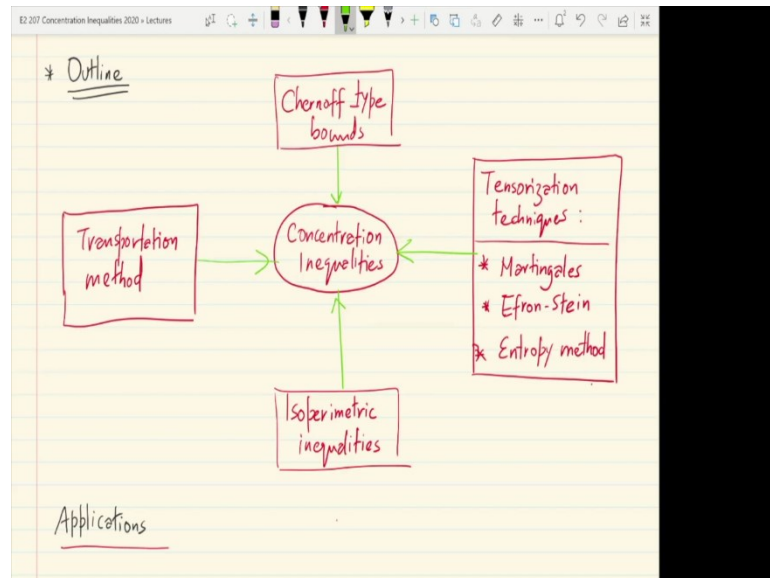 E2 207 Concentration Inequalities 2020 » Lectures
* Outline
Chernoff type
bounds
Transportation
method
Concentration
Inequalities
Tensorization
techniques :
* Martingales
* Efron-Stein
* Entropy method
Isoperimetric
inequalities
Applications